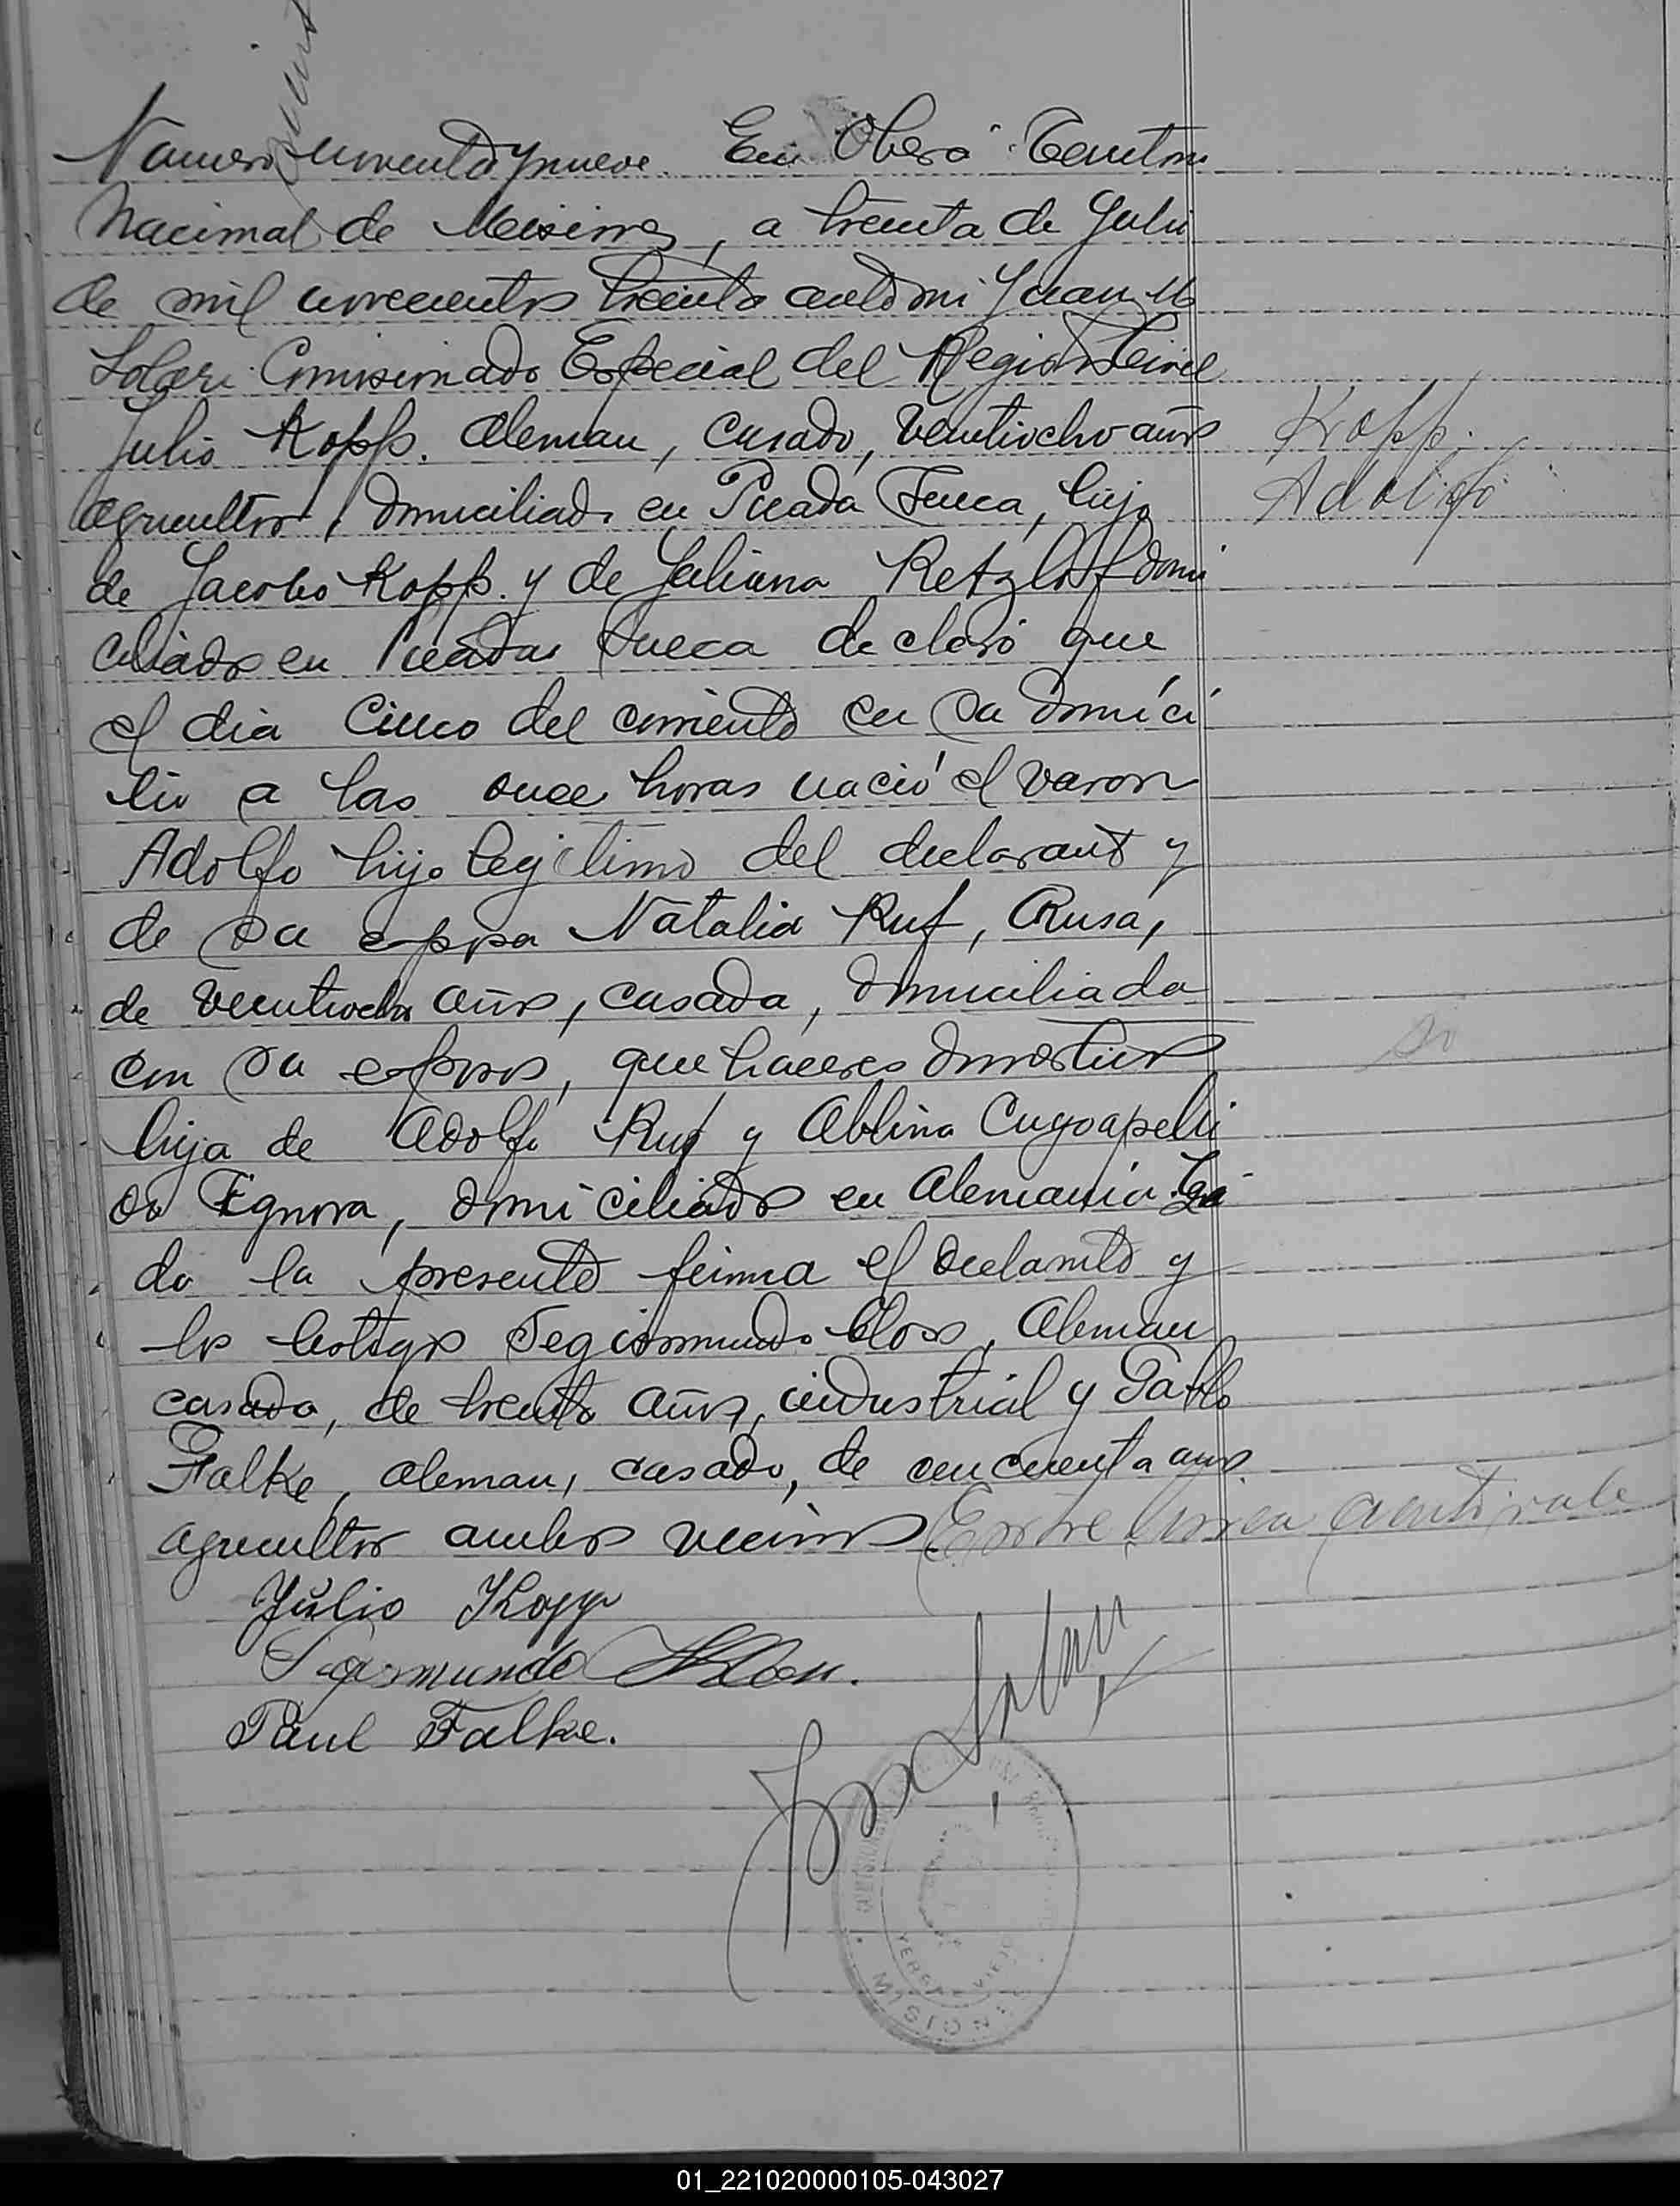 Numero noventa y nueve. En Oberá Territorio
Nacional de Misiones, a treinta de Julio
de mil novecientos treinta ante mi Juan M
Solari Comisionado Especial del Registro Civil
Julio Kopp. Aleman, casado, veintiocho años
agricultor, domiciliado en Picada Sueca, hijo
de Jacobo Kopp. y de Juliana Retzlaf domi
ciliados en Picada Sueca declaró que
el dia cinco del corriente en su domici
lio a las once horas nació el varon
Adolfo hijo legitimo del declarante y
de su esposa Natalia Ruf, Rusa,
de veintiocho años, casada, domiciliada
con su esposo, quehaceres domesticos
hija de Adolfo Ruf y Ablina Cuyo apelli
do Ignora, domiciliados en Alemania. Lei
da la presente firma el declarante y
los testigos Segismundo Aleman
casado, de treinta años, industrial y Pablo
Falke, aleman, casado, de cincuenta años
agricultor ambos vecinos Entre linea vale
Kopp.
Adolfo
Julio Kopp
Segismundo
Paul Falke.
Juan Solari
YERBAL VIEJO
MISIONES
01_221020000105-043027